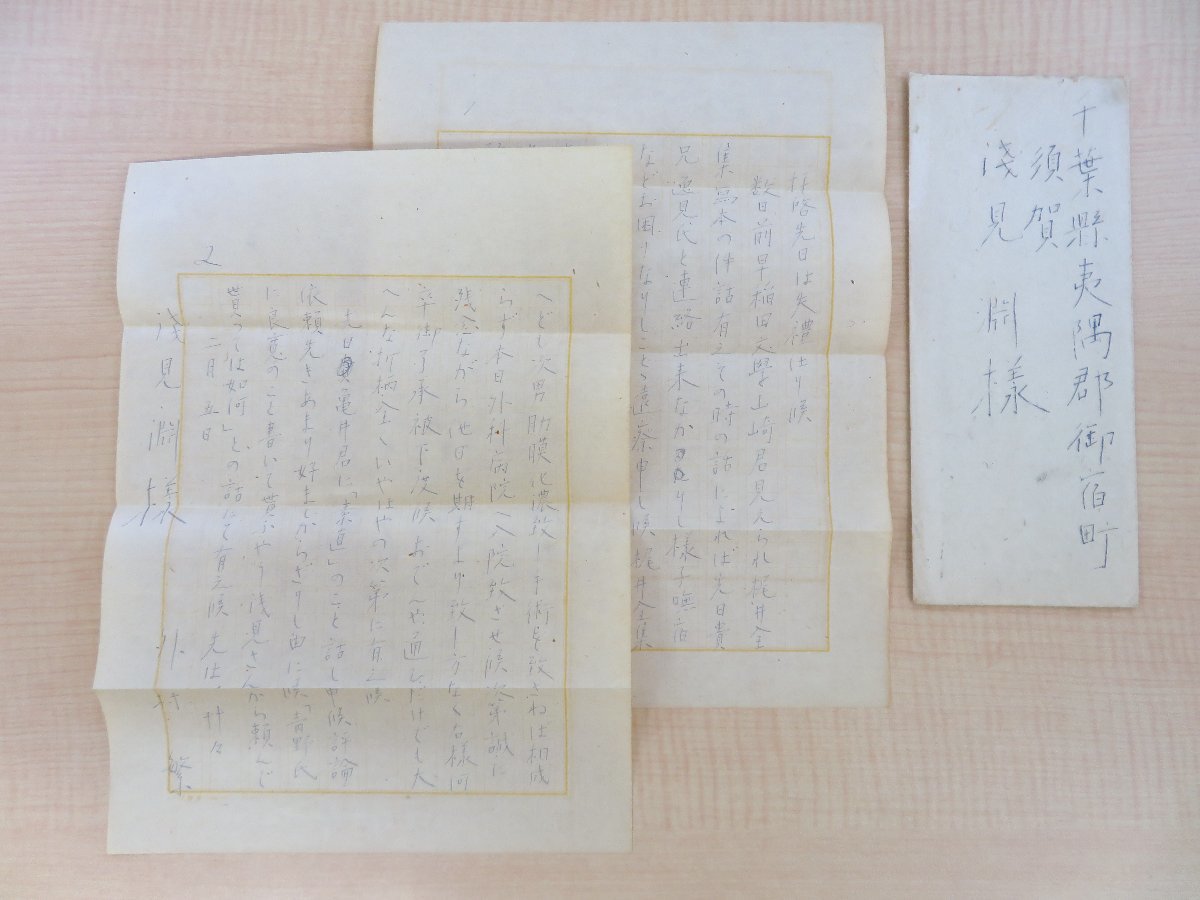 千葉縣夷隅郡御宿町
須賀
淺見 淵様
1
拝啓先日は失禮仕り候
数日前早稲田文學山崎君見えられ梶井全
集 本の件話有之その時の話によれば先日貴
兄逸見氏と連絡出来なかりし様子
などお困りなりしことゝ遠察申し候梶井全集
2
へども次男肋膜化濃致し手術を致さねば相成
らず本日外科病院へ入院致させ候次第誠に
残念ながら他日を期すより致し方なく右様何
卒御了承被下度候 おでんや通ひだけども大
へんな折柄全くいやはやの次第に有之候
先日亀井君に「素直」のこと話し申候評論
依頼先きあまり好ましからざりし由に候「青野氏
に良寛のこと書いて貰ふやう淺見さんから頼んで
貰つては如何」との話にて有之候 先は 艸々
二月五日
外村 繁
淺見 淵様